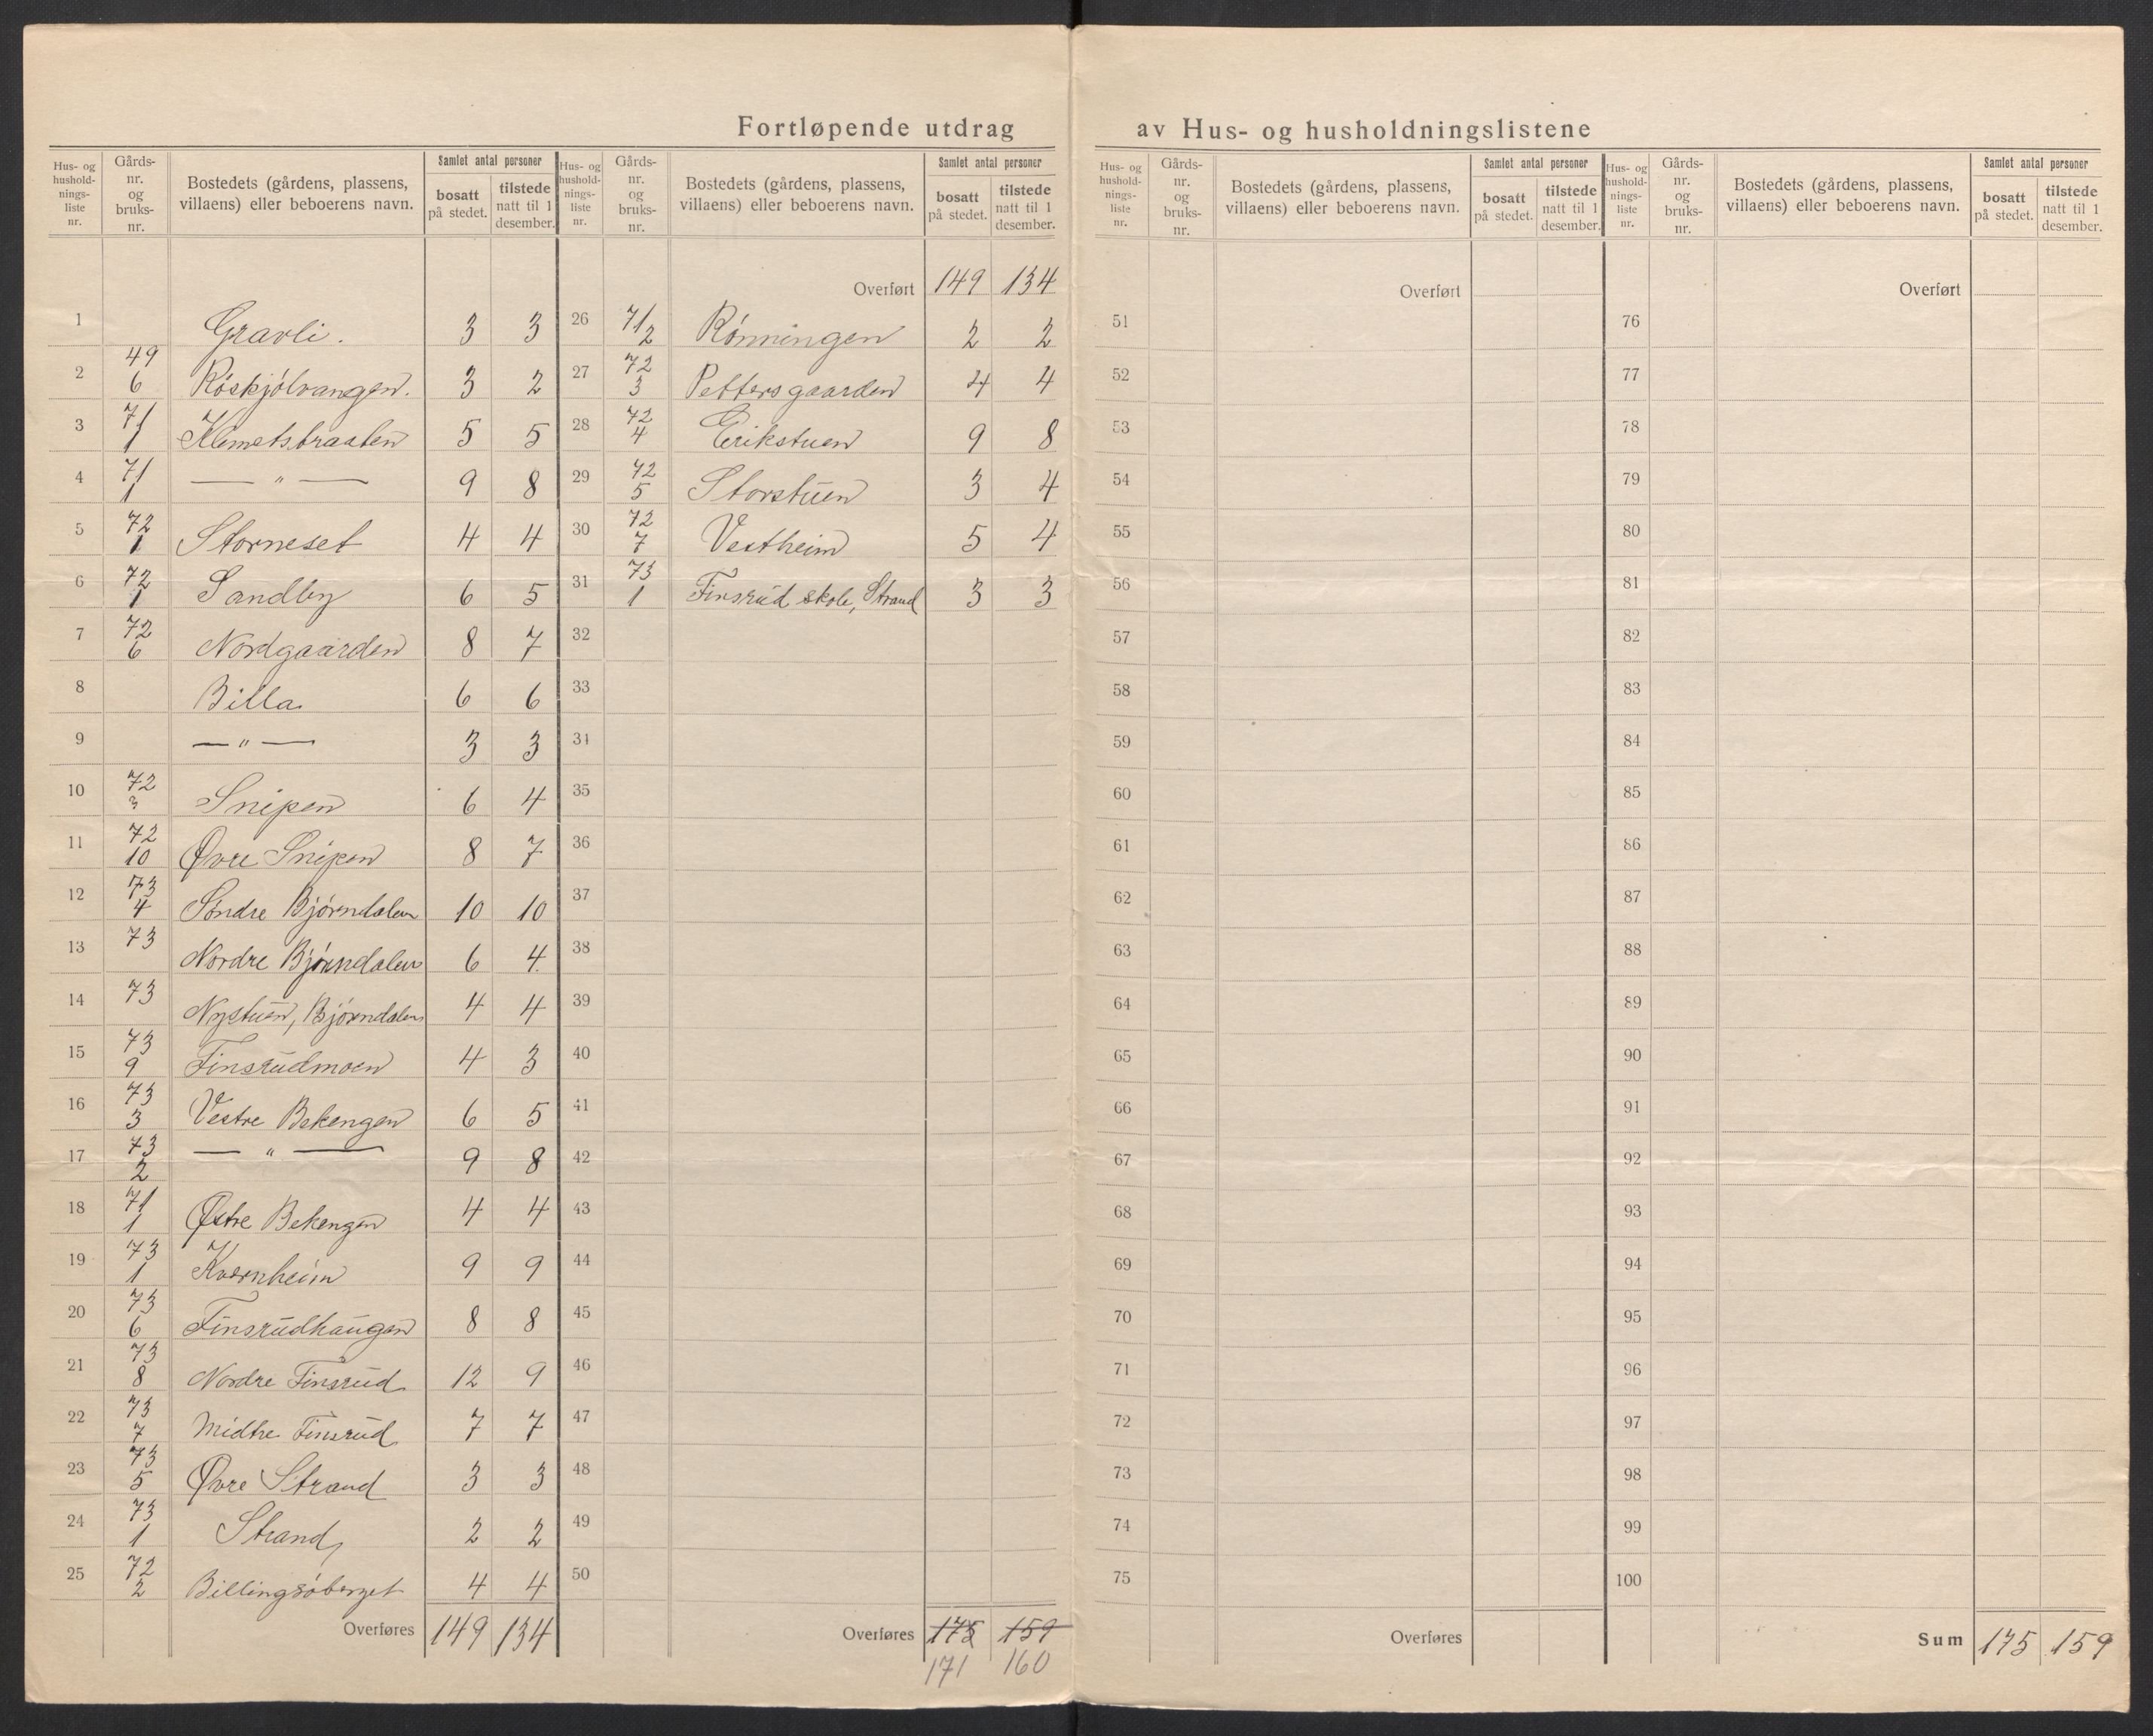 Fortløpende utdrag av Hus- og husholdningslistene
Hus- og husholdnings-liste nr. | Gårds-nr. og bruks-nr. | Bostedets (gårdens, plassens, villaens) eller beboerens navn. | Samlet antal personer | bosatt på stedet. | tilstede natt til 1 desember.
1 Gravli. 3 3
2 49/6 Röskjölvangen. 3 2
3 71/1 Klemetsbraaten 5 5
4 71/1 — " — 9 8
5 72/1 Storneset 4 4
6 72/1 Sandby 6 5
7 72/6 Nordgaarden 8 7
8 Billa 6 6
9 — " — 3 3
10 72/3 Snipen 6 4
11 72/10 Øvre Snipen 8 7
12 73/4 Söndre Bjørndalen 10 10
13 73 Nordre Bjørndalen 6 4
14 73 Nystuen, Bjørndalen 4 4
15 73/9 Finsrudmoen 4 3
16 73/3 Vestre Bekengen 6 5
17 73/2 — " — 9 8
18 71/1 Østre Bekengen 4 4
19 73/1 Kvernheim 9 9
20 73/6 Finsrudhaugen 8 8
21 73/8 Nordre Finsrud 12 9
22 73/7 Midtre Finsrud 7 7
23 73/5 Øvre Strand 3 3
24 73/1 Strand, 2 2
25 72/2 Billingsöberget 4 4
Overføres 149 134
Hus- og husholdnings-liste nr. | Gårds-nr. og bruks-nr. | Bostedets (gårdens, plassens, villaens) eller beboerens navn. | Samlet antal personer | bosatt på stedet. | tilstede natt til 1 desember.
Overført 149 134
26 71/2 Rönningen 2 2
27 72/3 Pettersgaarden 4 4
28 72/4 Erikstuen 9 8
29 72/5 Storstuen 3 4
30 72/7 Vestheim 5 4
31 73/1 Finsrud skole, Strand 3 3
32
33
34
35
36
37
38
39
40
41
42
43
44
45
46
47
48
49
50
Overføres 175 159
171 160
Hus- og husholdnings-liste nr. | Gårds-nr. og bruks-nr. | Bostedets (gårdens, plassens, villaens) eller beboerens navn. | Samlet antal personer | bosatt på stedet. | tilstede natt til 1 desember.
Overført
51
52
53
54
55
56
57
58
59
60
61
62
63
64
65
66
67
68
69
70
71
72
73
74
75
Overføres
Hus- og husholdnings-liste nr. | Gårds-nr. og bruks-nr. | Bostedets (gårdens, plassens, villaens) eller beboerens navn. | Samlet antal personer | bosatt på stedet. | tilstede natt til 1 desember.
Overført
76
77
78
79
80
81
82
83
84
85
86
87
88
89
90
91
92
93
94
95
96
97
98
99
100
Sum 175 159